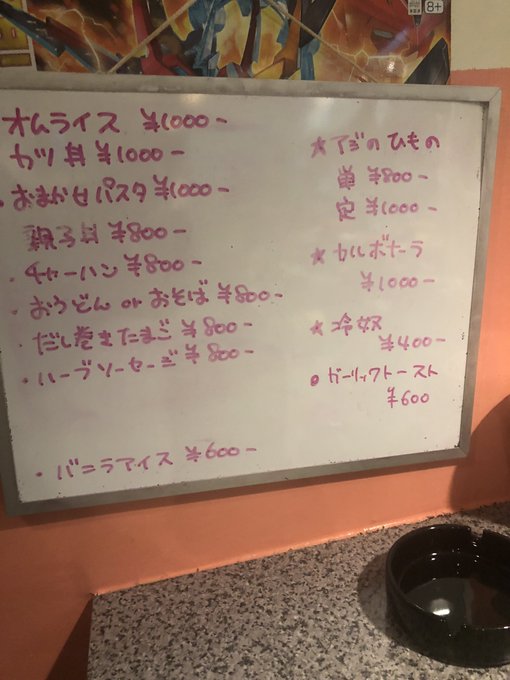 8+
オムライス ¥1000-
カツ丼 ¥1000-
・おまかせパスタ ¥1000-
親子丼 ¥800-
・チャーハン ¥800-
・おうどん or おそば ¥800-
・だし巻きたまご ¥800-
・ハーブソーセージ ¥800-
・バニラアイス ¥600-
★アジのひもの
単 ¥800-
定 ¥1000-
★カルボナーラ
¥1000-
★冷奴
¥400-
●ガーリックトースト
¥600